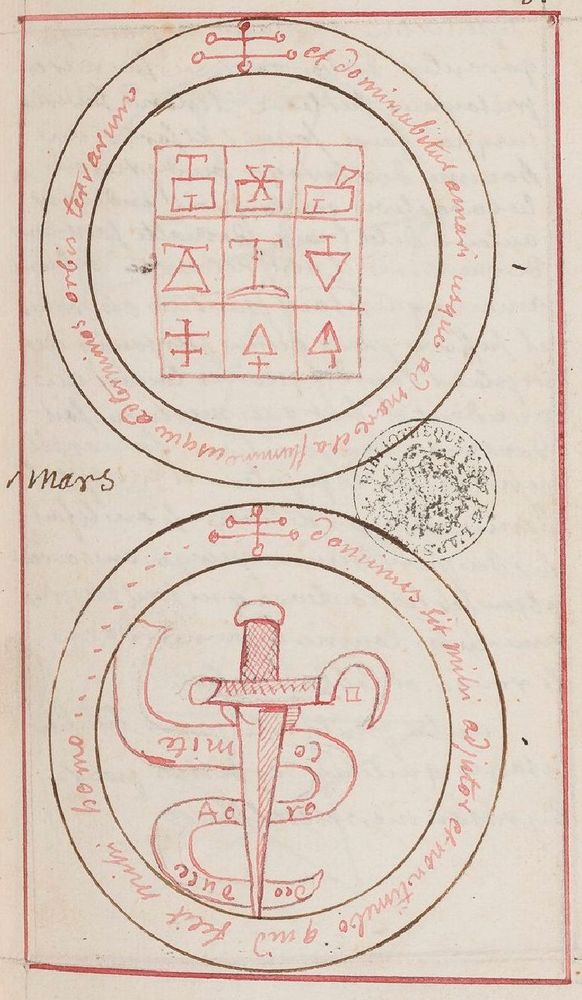 et dominabitur a mari usque ad mare et a flumine usque ad terminos orbis terrarum
BIBLIOTHEQUE
Mars
dominus sit mihi adjutor et non timebo quid facit mihi homo
mite co
Ao ro
duce deo